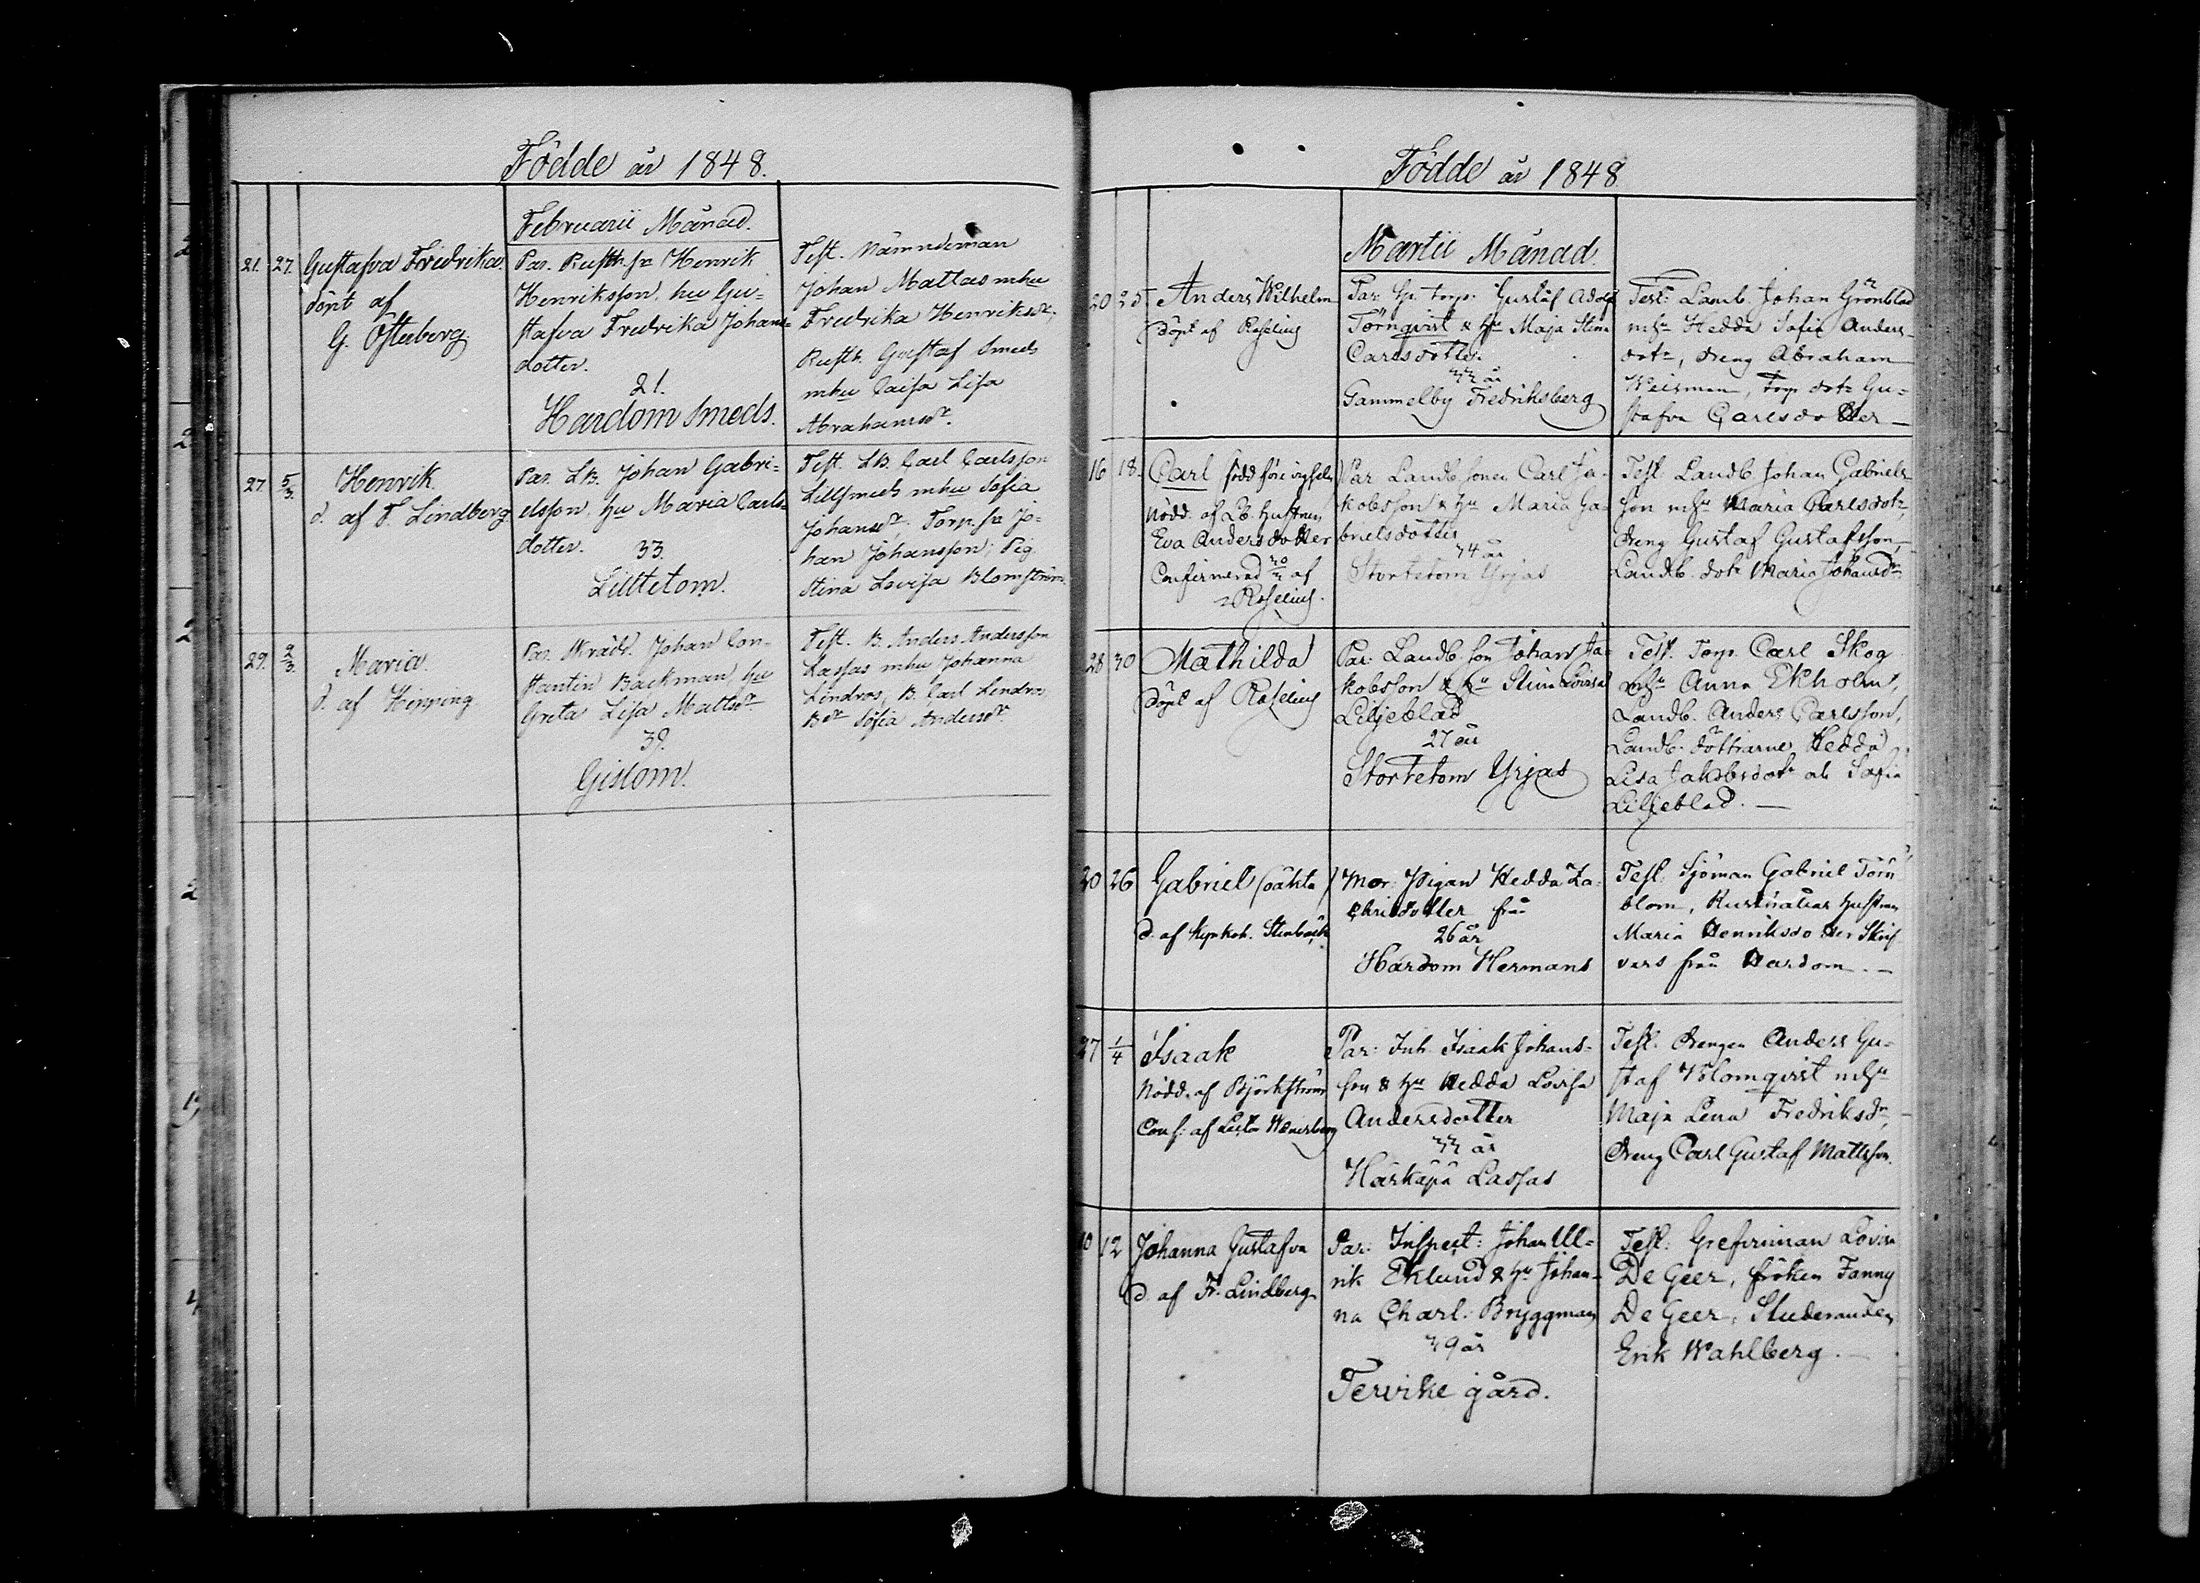 Födde år 1848.
Februarii Månad.
21. 27. Gustafva Fredrika.
döpt af
G. Österberg
Par. Rusth. sn Henrik
Henriksson, hu Gu-
stafva Fredrika Johans-
dotter.
21.
Hardom Smeds.
Test. Nämndeman
Johan Mattas mhu
Fredrika Henriksdr,
Rusth. Gustaf Smeds
mhu Caisa Lisa
Abrahamsdr.
27. 5/3. Henrik.
d. af F. Lindberg
Par. LB. Johan Gabri-
elsson, hu Maria Carls-
dotter.
33.
Lilltetom.
Test. LB. Carl Carlsson
Lillsmeds mhu Sofia
Johansdr. Torp. sn Jo-
han Johansson, Pig.
Stina Lovisa Blomström
29. 2/3. Maria.
d. af Hipping
Par. Skrädd. Johan Con-
stantin Backman, hu
Greta Lisa Mattsdr
39.
Gislom.
Test. B. Anders Andersson
Lassas mhu Johanna
Lindros, B. Carl Lindros
Bdr Sofia Andersdr.
Födde år 1848
Martii Månad.
20 25 Anders Wilhelm
döpt af Roselius
Par: Torp. Gustaf Adolf
Törnqvist & hu Maja Stina
Carlsdotter.
33 år
Gammelby Fredriksberg
Test: Landb. Johan Grönblad
mhu Hedda Sofia Anders-
dotr, dreng Abraham
Weisman, Torp dotr Gu-
stafva Carlsdotter —
16 18. Carl född före vigseln
Nödd. af LB. hustrun
Eva Andersdotter
Confirmerad 20/3 af
Roselius.
Par Landb. sonen Carl Ja-
kobsson & hu Maria Ga-
brielsdotter
34 år
Stortetom Yrjas
Test Landb. Johan Gabriels-
son mhu Maria Carlsdotr,
dreng Gustaf Gustafsson,
Landb. dotr Maria Johansdr
28 30 Mathilda
döpt af Roselius
Par: Landb. son Johan Ja-
kobsson & hu Stina Lovisa
Liljeblad
27 år
Stortetom Yrjas
Test. Torp. Carl Skog
mhu Anna Ekholm,
Landb. Anders Carlsson,
Landb. döttrarne Hedda
Lisa Jakobsdotr ok Sofia
Liljeblad. —
20 26 Gabriel (oäkta)
d. af Kyrkoh. Stenbäck
Mor: Pigan Hedda Za-
chrisdotter från
26 år
Hardom Hermans
Test. Sjöman Gabriel Törn
blom, Rusthållar hustrun
Maria Henriksdotter Skrif
vars från Hardom. —
27 1/4 Isaak
Nödd. af Björkström
Conf: af Lector Wænerberg
Par: Inh. Isaak Johans-
son & hu Hedda Lovisa
Andersdotter
33 år
Härkäpä Lassas
Test. drengen Anders Gu-
staf Blomqvist mhu
Maja Lena Fredriksdr,
dreng Carl Gustaf Mattsson.
10 12 Johanna Gustafva
d. af Fr. Lindberg
Par: Inspect: Johan Ul-
rik Eklund & hu Johan-
na Charl: Bryggman
39 år
Tervike gård.
Test. Grefvinnan Lovisa
De Geer, fröken Fanny
De Geer, Studeranden
Erik Wahlberg. —